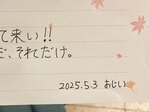 て来い!!
ど、それだけ。
2025.5.3 おじい